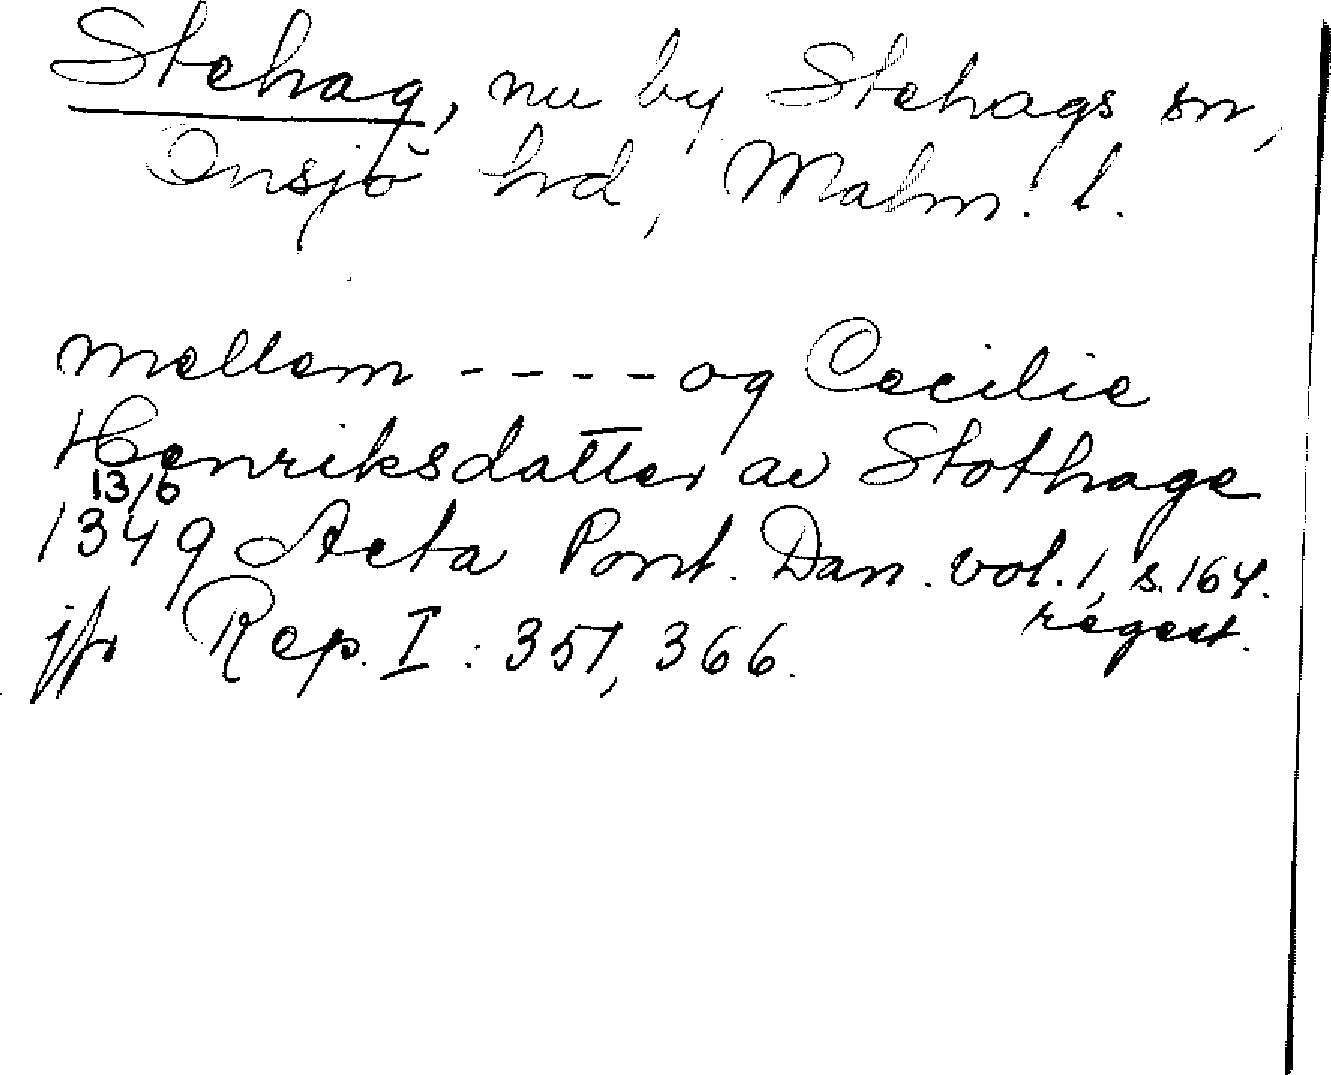 Stehag, nu by Stehags sn,
Onsjö hrd, Malm. l.
mellem ---- og Cecilie
Henriksdatter av Stothage
13/6
1349 Acta Pont. Dan. vol. 1, s. 164.
regest.
jfr Rep. I : 351, 366.